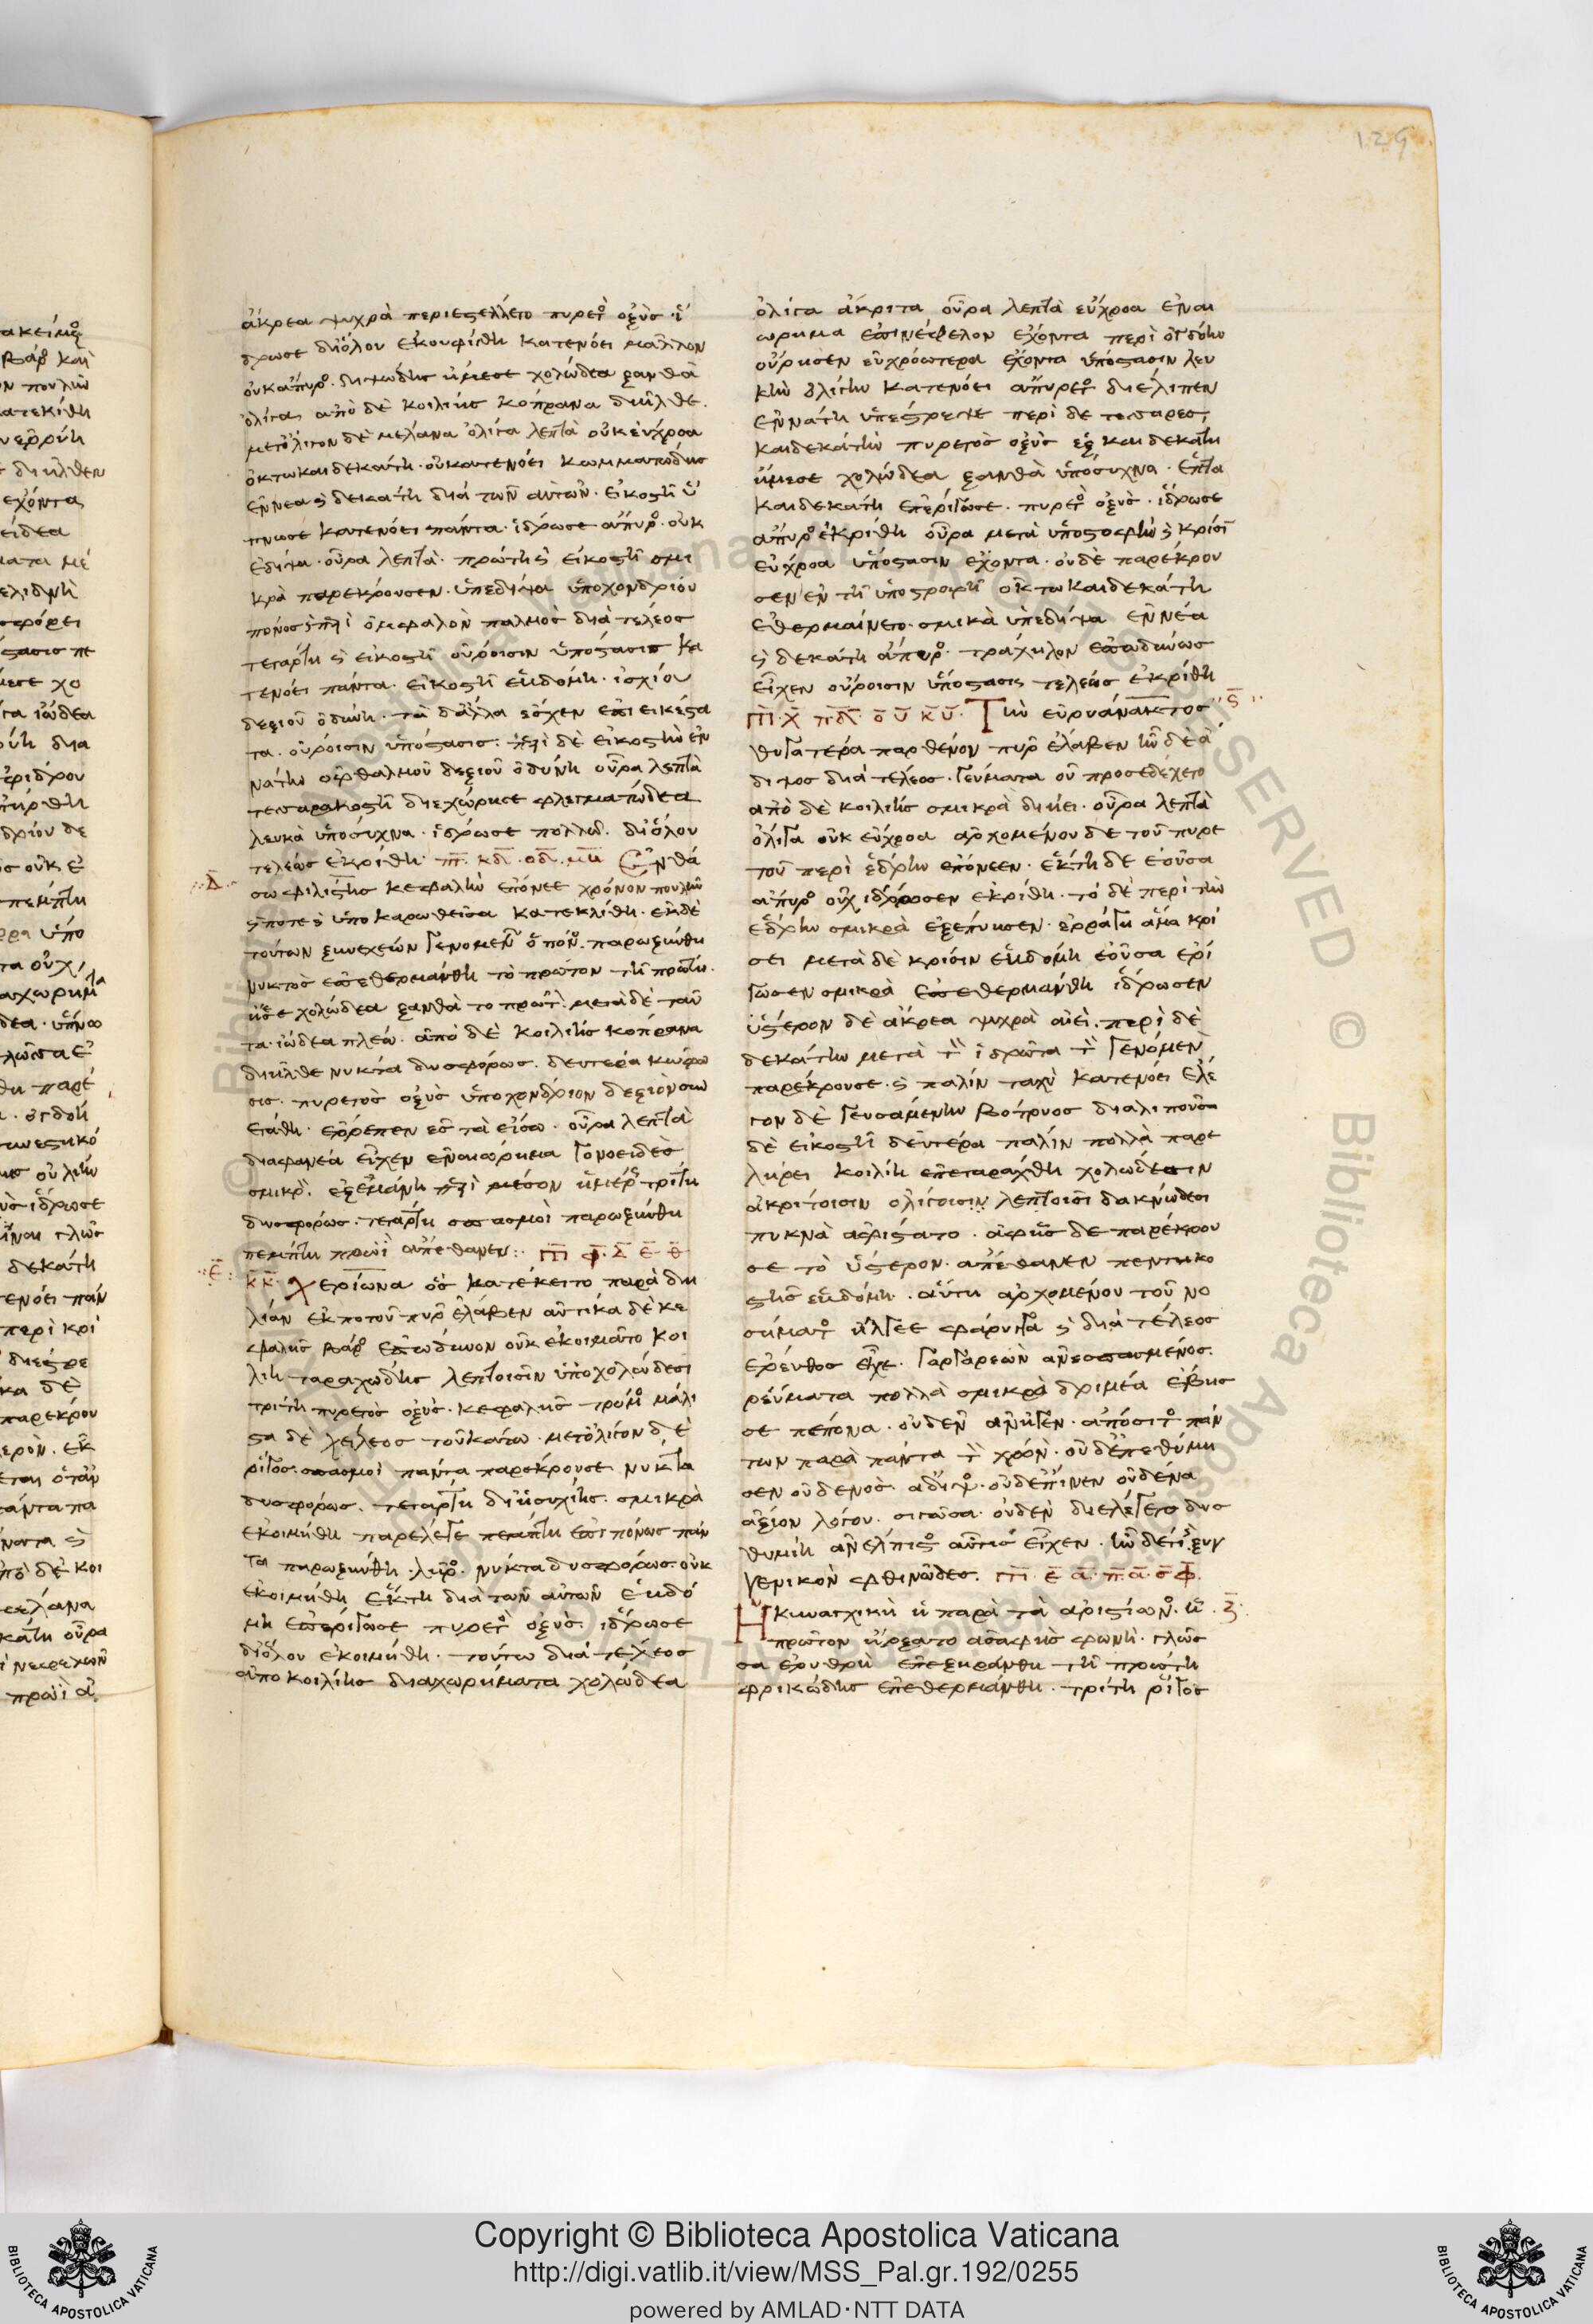 129
ἄκρεα ψυχρὰ περιεστέλλετο πυρετὸς ὀξὺς ἵ
δρωσε δι' ὅλου ἐκουφίσθη κατενόει μᾶλλον
οὐκ ἄπυρος διψώδης ἤμεσε χολώδεα ξανθὰ
ὀλίγα ἀπὸ δὲ κοιλίης κόπρανα διῆλθε.
μετ' ὀλίγον δὲ μέλανα ὀλίγα λεπτὰ οὐκ εὔχροα
ὀκτωκαιδεκάτη οὐ κατενόει κωματώδης
ἐννεα ϗ δεκάτη διὰ τῶν αὐτῶν. εἰκοστῆ ὕ
πνωσε κατενόει πάντα. ἵδρωσε ἄπυρος οὐκ
ἐδίψα οὖρα λεπτὰ. πρώτη ϗ εἰκοστῆ σμι
κρὰ παρέκρουσεν ὑπεδίψα ὑποχονδρίου
πόνος ϗ περὶ ὀμφαλὸν παλμὸς διὰ τέλεος
τετάρτη ϗ εἰκοστῆ οὔροισιν ὑπόστασις κα
τενόει πάντα. εἰκοστῆ ἑβδόμη. ἰσχίου
δεξιοῦ ὀδύνη. τὰ δ' ἄλλα ἔσχεν ἐπιεικέστα
τα. οὔροισιν ὑπόστασις. περὶ δὲ εἰκοστὴν ἐν
νάτην ὀφθαλμοῦ δεξιοῦ ὀδύνη οὖρα λεπτὰ
τεσσαρακοστῆ διεχώρησε φλεγματώδεα
λευκὰ ὑπόσυχνα. ἵδρωσε πολλῶ. δι' ὅλου
τελέως ἐκρίθη π. κδ. οδ. μη Ἐν θά
Δ
σω φιλιστὴς κεφαλὴν ἐπόνεε χρόνον πουλὺν
ϗ ποτε ϗ ὑποκαρωθεῖσα κατεκλίθη. ἐκ δὲ
τούτων ξυνεχέων γενομένων ὁ πόνος παρωξύνθη
νυκτὸς ἐπεθερμάνθη τὸ πρῶτον τῆ πρώτη.
ἤμεσε χολώδεα ξανθὰ τὸ πρῶτον μετὰ δὲ ταῦ
τα ἰώδεα πλέω. ἀπὸ δὲ κοιλίης κόπρανα
διῆλθε νύκτα δυσφόρως. δευτέρα κώφω
σις. πυρετὸς ὀξὺς ὑποχόνδριον δεξιὸν συν
ετάθη. ἔρρεπεν ἐς τὰ εἴσω. οὖρα λεπτὰ
διαφανέα εἶχεν ἐναιώρημα γονοειδὲς
σμικρόν. ἐξεμάνη περὶ μέσον ἡμέρης τρίτη
δυσφόρως. τετάρτη σπασμοὶ παρωξύνθη
πέμπτη πρωῒ ἀπέθανεν:. π φ. Δ ε θ
ε
κ κ. χερίωνα ὃς κατέκειτο παρὰ δη
λίαν ἐκ ποτοῦ πῦρ ἔλαβεν αὐτίκα δὲ κε
φαλῆς βάρος ἐπώδυνον οὐκ ἐκοιμᾶτο κοι
λίη ταραχώδης λεπτοισιν ὑποχολώδεσι
τρίτη πυρετὸς ὀξὺς. κεφαλῆς τρόμος μάλι
στα δὲ χείλεος τοῦ κάτω. μετ' ὀλίγον δὲ
ῥῖγος. σπασμοὶ πάντα παρέκρουσε νύκτα
δυσφόρως. τετάρτη δι' ἡσυχίης. σμικρὰ
ἐκοιμήθη παρέλεγε πέμπτη ἐπιπόνως πάν
τα παρωξύνθη. λῆρος. νύκτα δυσφόρως. οὐκ
ἐκοιμήθη ἕκτη διὰ τῶν αὐτῶν ἑβδό
μη ἐπερίγωσε πυρετὸς ὀξὺς. ἵδρωσε
δι' ὅλου ἐκοιμήθη. τούτω διὰ τέλεος
ἀπὸ κοιλίης διαχωρήματα χολώδεα
ὀλίγα ἄκριτα οὖρα λεπτὰ εὔχροα ἐναι
ώρημα ἐπινέφελον ἔχοντα περὶ ὀγδόην
οὔρησεν εὐχροώτερα ἔχοντα ὑπόστασιν λευ
κὴν ὀλίγην κατενόει ἄπυρετος διέλιπεν
ἐννάτη ὑπέστρεψε περὶ δὲ τεσσαρεσ
καιδεκάτην πυρετὸς ὀξὺς ἑξ καιδεκάτη
ἤμεσε χολώδεα ξανθὰ ὑπόσυχνα. ἑπτα
καιδεκάτη ἐπερίγωσε. πυρετὸς ὀξὺς. ἵδρωσε
ἄπυρος ἐκρίθη οὖρα μετὰ ὑποστροφὴν ϗ κρίσιν
εὔχροα ὑπόστασιν ἔχοντα. οὐδὲ παρέκρου
σεν ἐν τῆ ὑποστροφῆ ὀκτωκαιδεκάτη
ἐθερμαίνετο σμικρὰ ὑπεδίψα ἐννέα
ϗ δεκάτη ἄπυρος τράχηλον ἐπωδύνως
εἶχεν οὔροισιν ὑπόστασις τελέως ἐκρίθη
π. χ πδ. ο υ κ υ. Τὴν εὐρυάνακτος
ς
θυγατέρα παρθένον πῦρ ἔλαβεν ἦν δὲ ἄ
διψος διὰ τέλεος. γεύματα οὐ προσεδέχετο
ἀπὸ δὲ κοιλίης σμικρὰ διήει. οὖρα λεπτὰ
ὀλίγα οὐκ εὔχροα ἀρχομένου δὲ τοῦ πυρε
τοῦ περὶ ἕδρην ἐπόνεεν. ἑκτὴ δὲ ἐοῦσα
ἄπυρος οὐχ ἵδρωσεν ἐκρίθη. τὸ δὲ περὶ τὴν
ἕδρην σμικρὰ ἐξεπύησεν. ἐρράγη ἅμα κρί
σει μετὰ δὲ κρίσιν ἑβδόμη ἐοῦσα ἐρί
γωσεν σμικρὰ ἐπεθερμάνθη ἵδρωσεν
ὕστερον δὲ ἄκρεα ψυχρὰ αἰεὶ. περὶ δὲ
δεκάτην μετὰ τὸν ἱδρῶτα τὸν γενόμενον
παρέκρουσε. ϗ πάλιν ταχὺ κατενόει ἔλε
γον δὲ γευσαμένην βότρυος διαλιποῦσα
δὲ εἰκοστῆ δευτέρα πάλιν πολλὰ παρε
λήρει κοιλίη ἐπεταράχθη χολώδεσιν
ἀκρίτοισιν ὀλίγοισιν λεπτοῖσι δακνώδεσι
πυκνὰ ἀφίστατο. ἀφῆς δὲ παρέκρου
σε τὸ ὕστερον. ἀπέθανεν πεντηκο
στῆς ἑβδόμη. αὕτη ἀρχομένου τοῦ νο
σήματος ἤλγεε φάρυγγα ϗ διὰ τέλεος
ἔρευθος εἶχε. γαργαρεὼν ἀνεσπασμένος.
ῥεύματα πολλὰ σμικρὰ δριμέα ἔβησ
σε πέπονα. οὐδὲν ἀνῆγεν. ἀπόσιτος πάν
των παρὰ πάντα τὸν χρόνον. οὐδ' ἐπεθύμη
σεν οὐδενὸς. ἄδιψος. οὐδ' ἔπινεν οὐδένα
ἄξιον λόγου. σιγῶσα. οὐδὲν διελέγετο δυσ
θυμίη ἀνέλπιστος αὑτῆς εἶχεν. ἦν δέ τι ξυγ
γενικὸν φθινῶδες. π. ε α. π. α. σ φ.
Ἡ κυναγχικὴ ἡ παρὰ τὰ ἀριστίωνος ἧ
ζ
πρῶτον ἤρξατο ἀσαφὴς φωνὴ. γλῶσ
σα ἐρυθρὴ ἐπεξηράνθη τῆ πρώτη
φρικώδης ἐπεθερμάνθη. τρίτη ῥῖγος
Copyright © Biblioteca Apostolica Vaticana
http://digi.vatlib.it/view/MSS_Pal.gr.192/0255
powered by AMLAD·NTT DATA